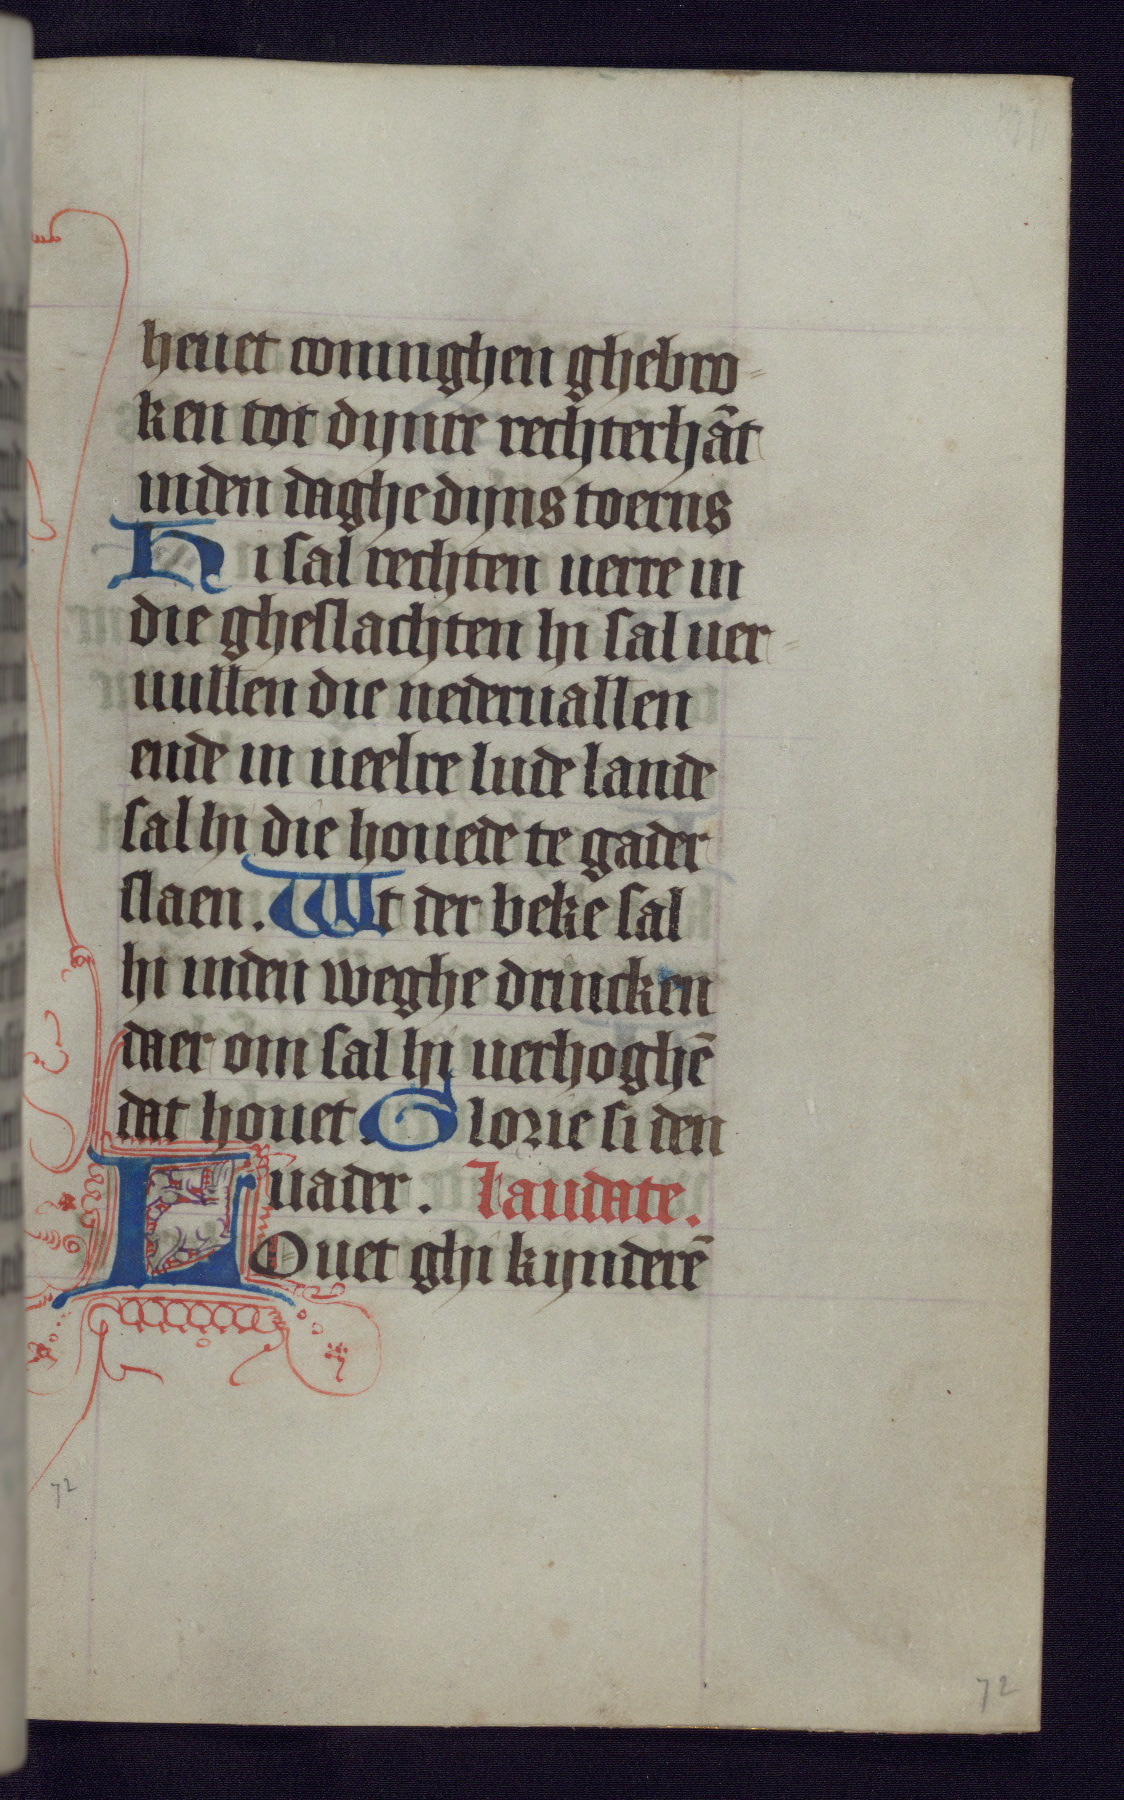 heuet coninghen ghebro-
ken tot dijnre rechterhāt
inden daghe dijns toerns
Hi sal rechten uerre in
die gheslachten hi sal uer-
uullen die nederuallen
ende in ueelre lude lande
sal hi die houede te gader
slaen. Wt der beke sal
hi inden weghe drincken
daer om sal hi uerhoghē
dat houet. Glorie si den
uader. Laudate.
LOuet ghi kijnderē
72
72